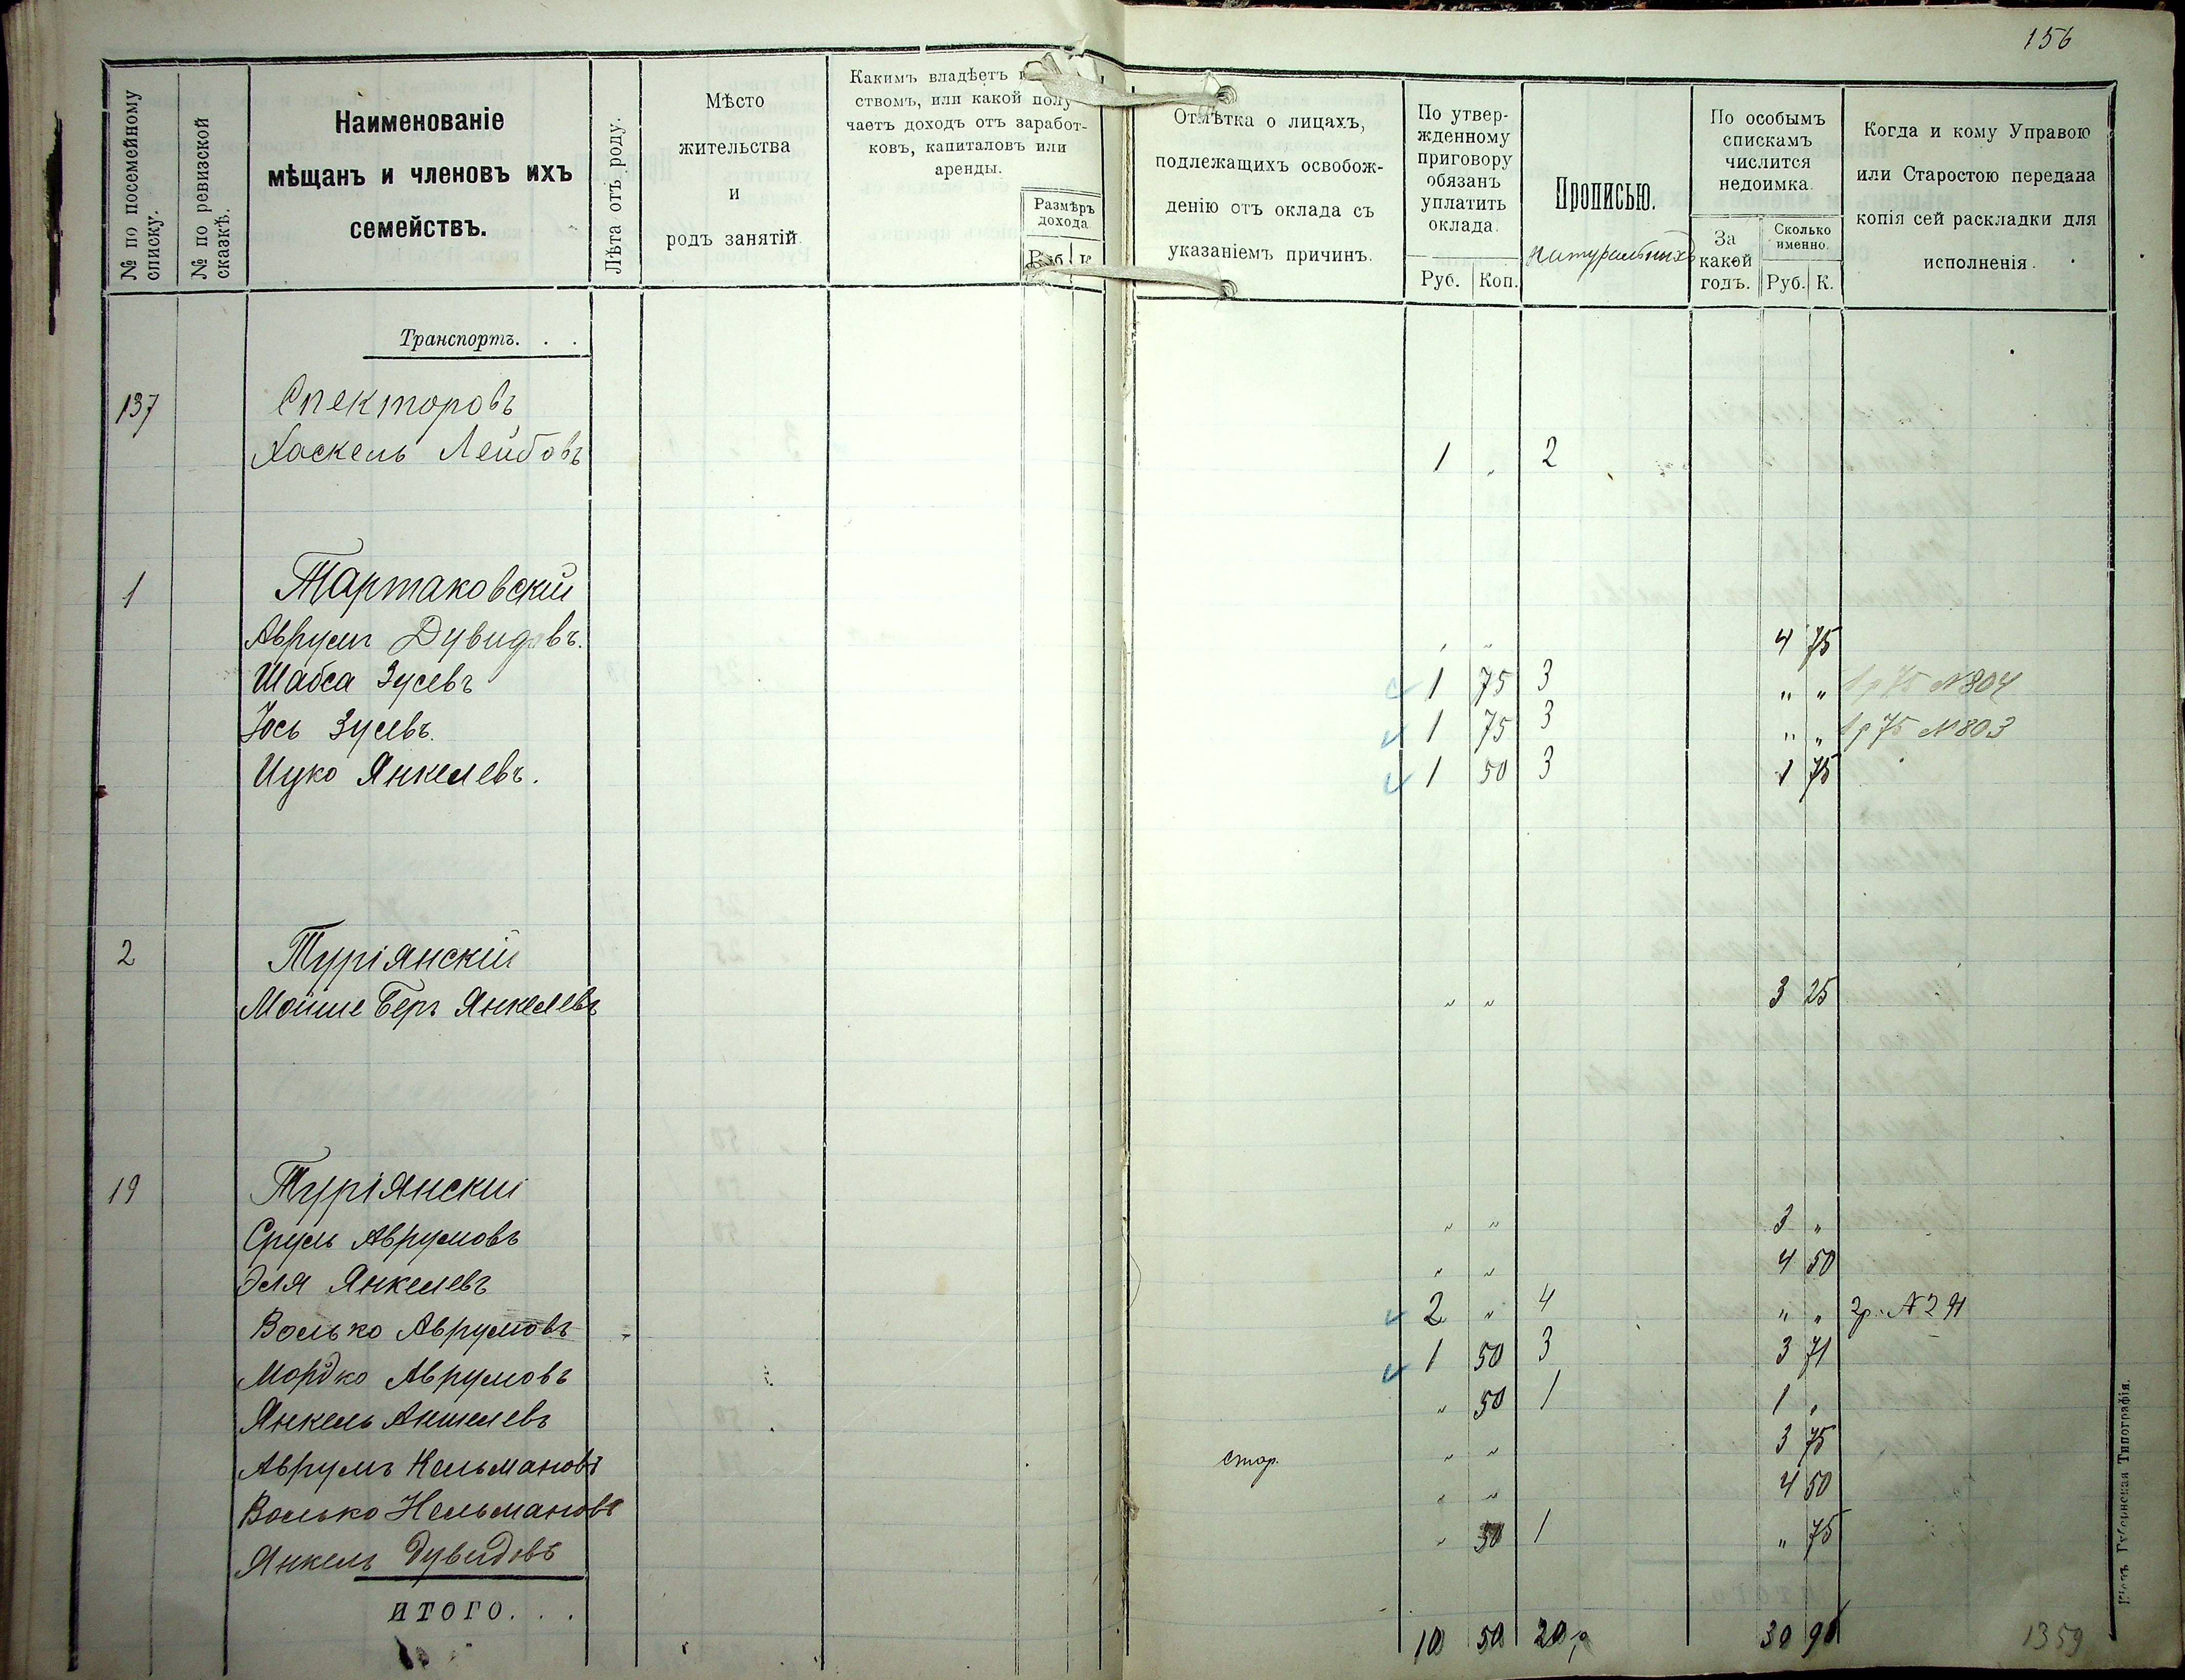 156
№ по посемейному списку.
№ по ревизской сказкѣ.
Наименованіе
мѣщанъ и членовъ ихъ
семействъ.
Лѣта отъ роду.
Мѣсто
жительства
и
родъ занятій.
Какимъ владѣетъ
ствомъ, или какой полу-
чаетъ доходъ отъ заработ-
ковъ, капиталовъ или
аренды.
Размѣръ
дохода
Руб. К.
Отмѣтка о лицахъ,
подлежащихъ освобож-
денію отъ оклада съ
указаніемъ причинъ.
По утвер-
жденному
приговору
обязанъ
уплатить
оклада.
Руб. Коп.
Прописью.
натуральныхъ
По особымъ
спискамъ
числится
недоимка.
За
какой
годъ.
Сколько
именно.
Руб. К.
Когда и кому Управою
или Старостою передана
копія сей раскладки для
исполненія.
Транспортъ. . .
137 Спекторовъ
Хаскель Лейбовъ 1 „ 2
1 Тартаковскій
Аврумъ Дувидовъ. „ „ 4 75
Шабса Зусевъ 1 75 3 „ „ 1 р 75 N804
Іось Зусевъ. 1 75 3 „ „ 1 р 75 N803
Ицко Янкелевъ. 1 50 3 1 75
2 Туріянскій
Мойше Беръ Янкелевъ „ „ 3 25
19 Туріянскій
Сруль Аврумовъ „ „ 3 „
Эля Янкелевъ „ „ 4 50
Волько Аврумовъ 2 „ 4 „ „ 2р. N291
Мордко Аврумовъ 1 50 3 3 71
Янкель Аншелевъ „ 50 1 1 „
Аврумъ Кельмановъ стар. „ „ 3 75
Волько Кельмановъ „ „ 4 50
Янкель Дувидовъ „ 50 1 „ 75
ИТОГО. . .
10 50 20 р 30 96
1359
Кіевъ Губернская Типографія.